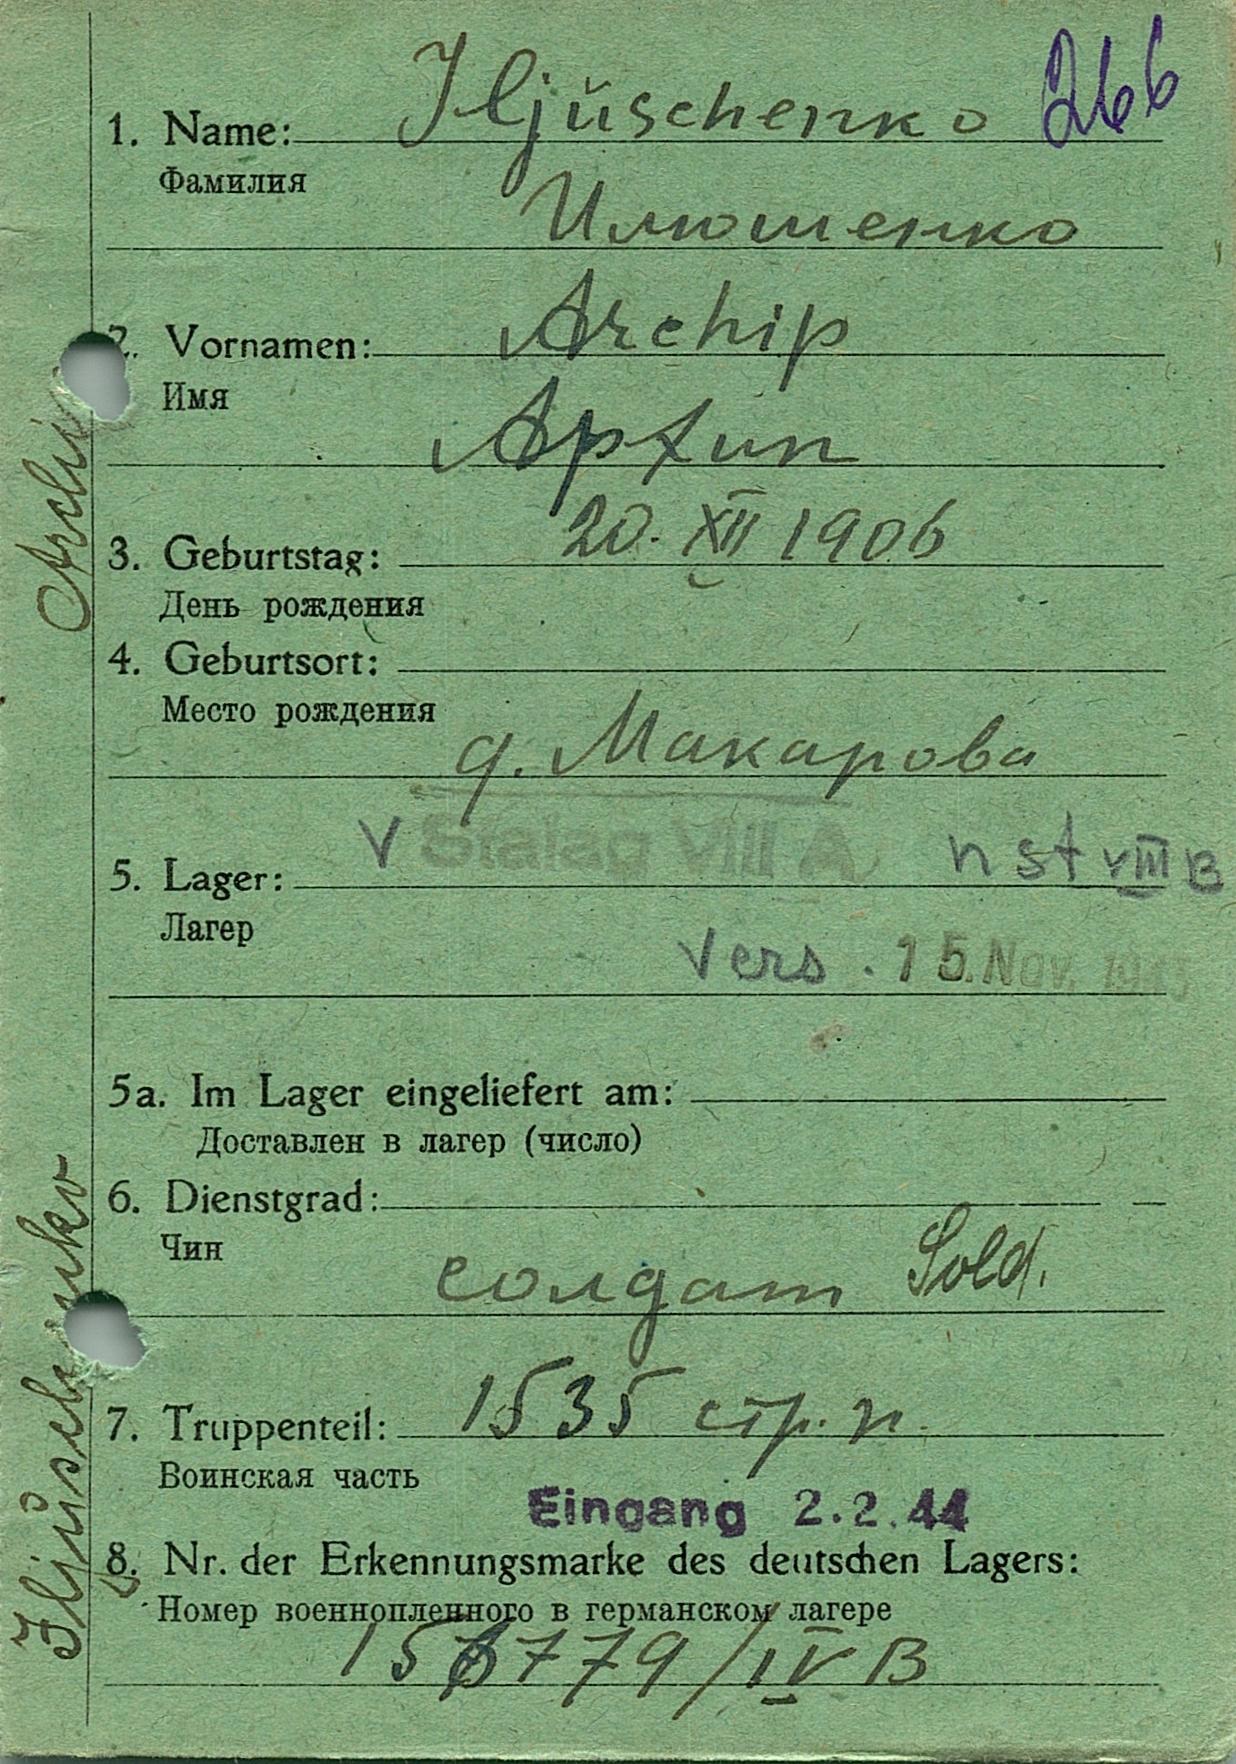 Iljuschenko 266
1. Name:
Фамилия
Илюшенко
2. Vornamen: Archip
Имя
Архип
3. Geburtstag: 20. XII 1906
День рождения
4. Geburtsort:
Место рождения
д. Макарова
V Stalag VIII A n st VIII B
5. Lager:
Лагер
Vers. 15. Nov. 194
5a. Im Lager eingeliefert am:
Доставлен в лагер (число)
6. Dienstgrad:
Чин
солдат Sold.
7. Truppenteil: 1535 стр. п.
Воинская часть
Eingang 2.2.44
8. Nr. der Erkennungsmarke des deutschen Lagers:
Номер военнопленного в германском лагере
779/IV B
Iljüschenko Archi